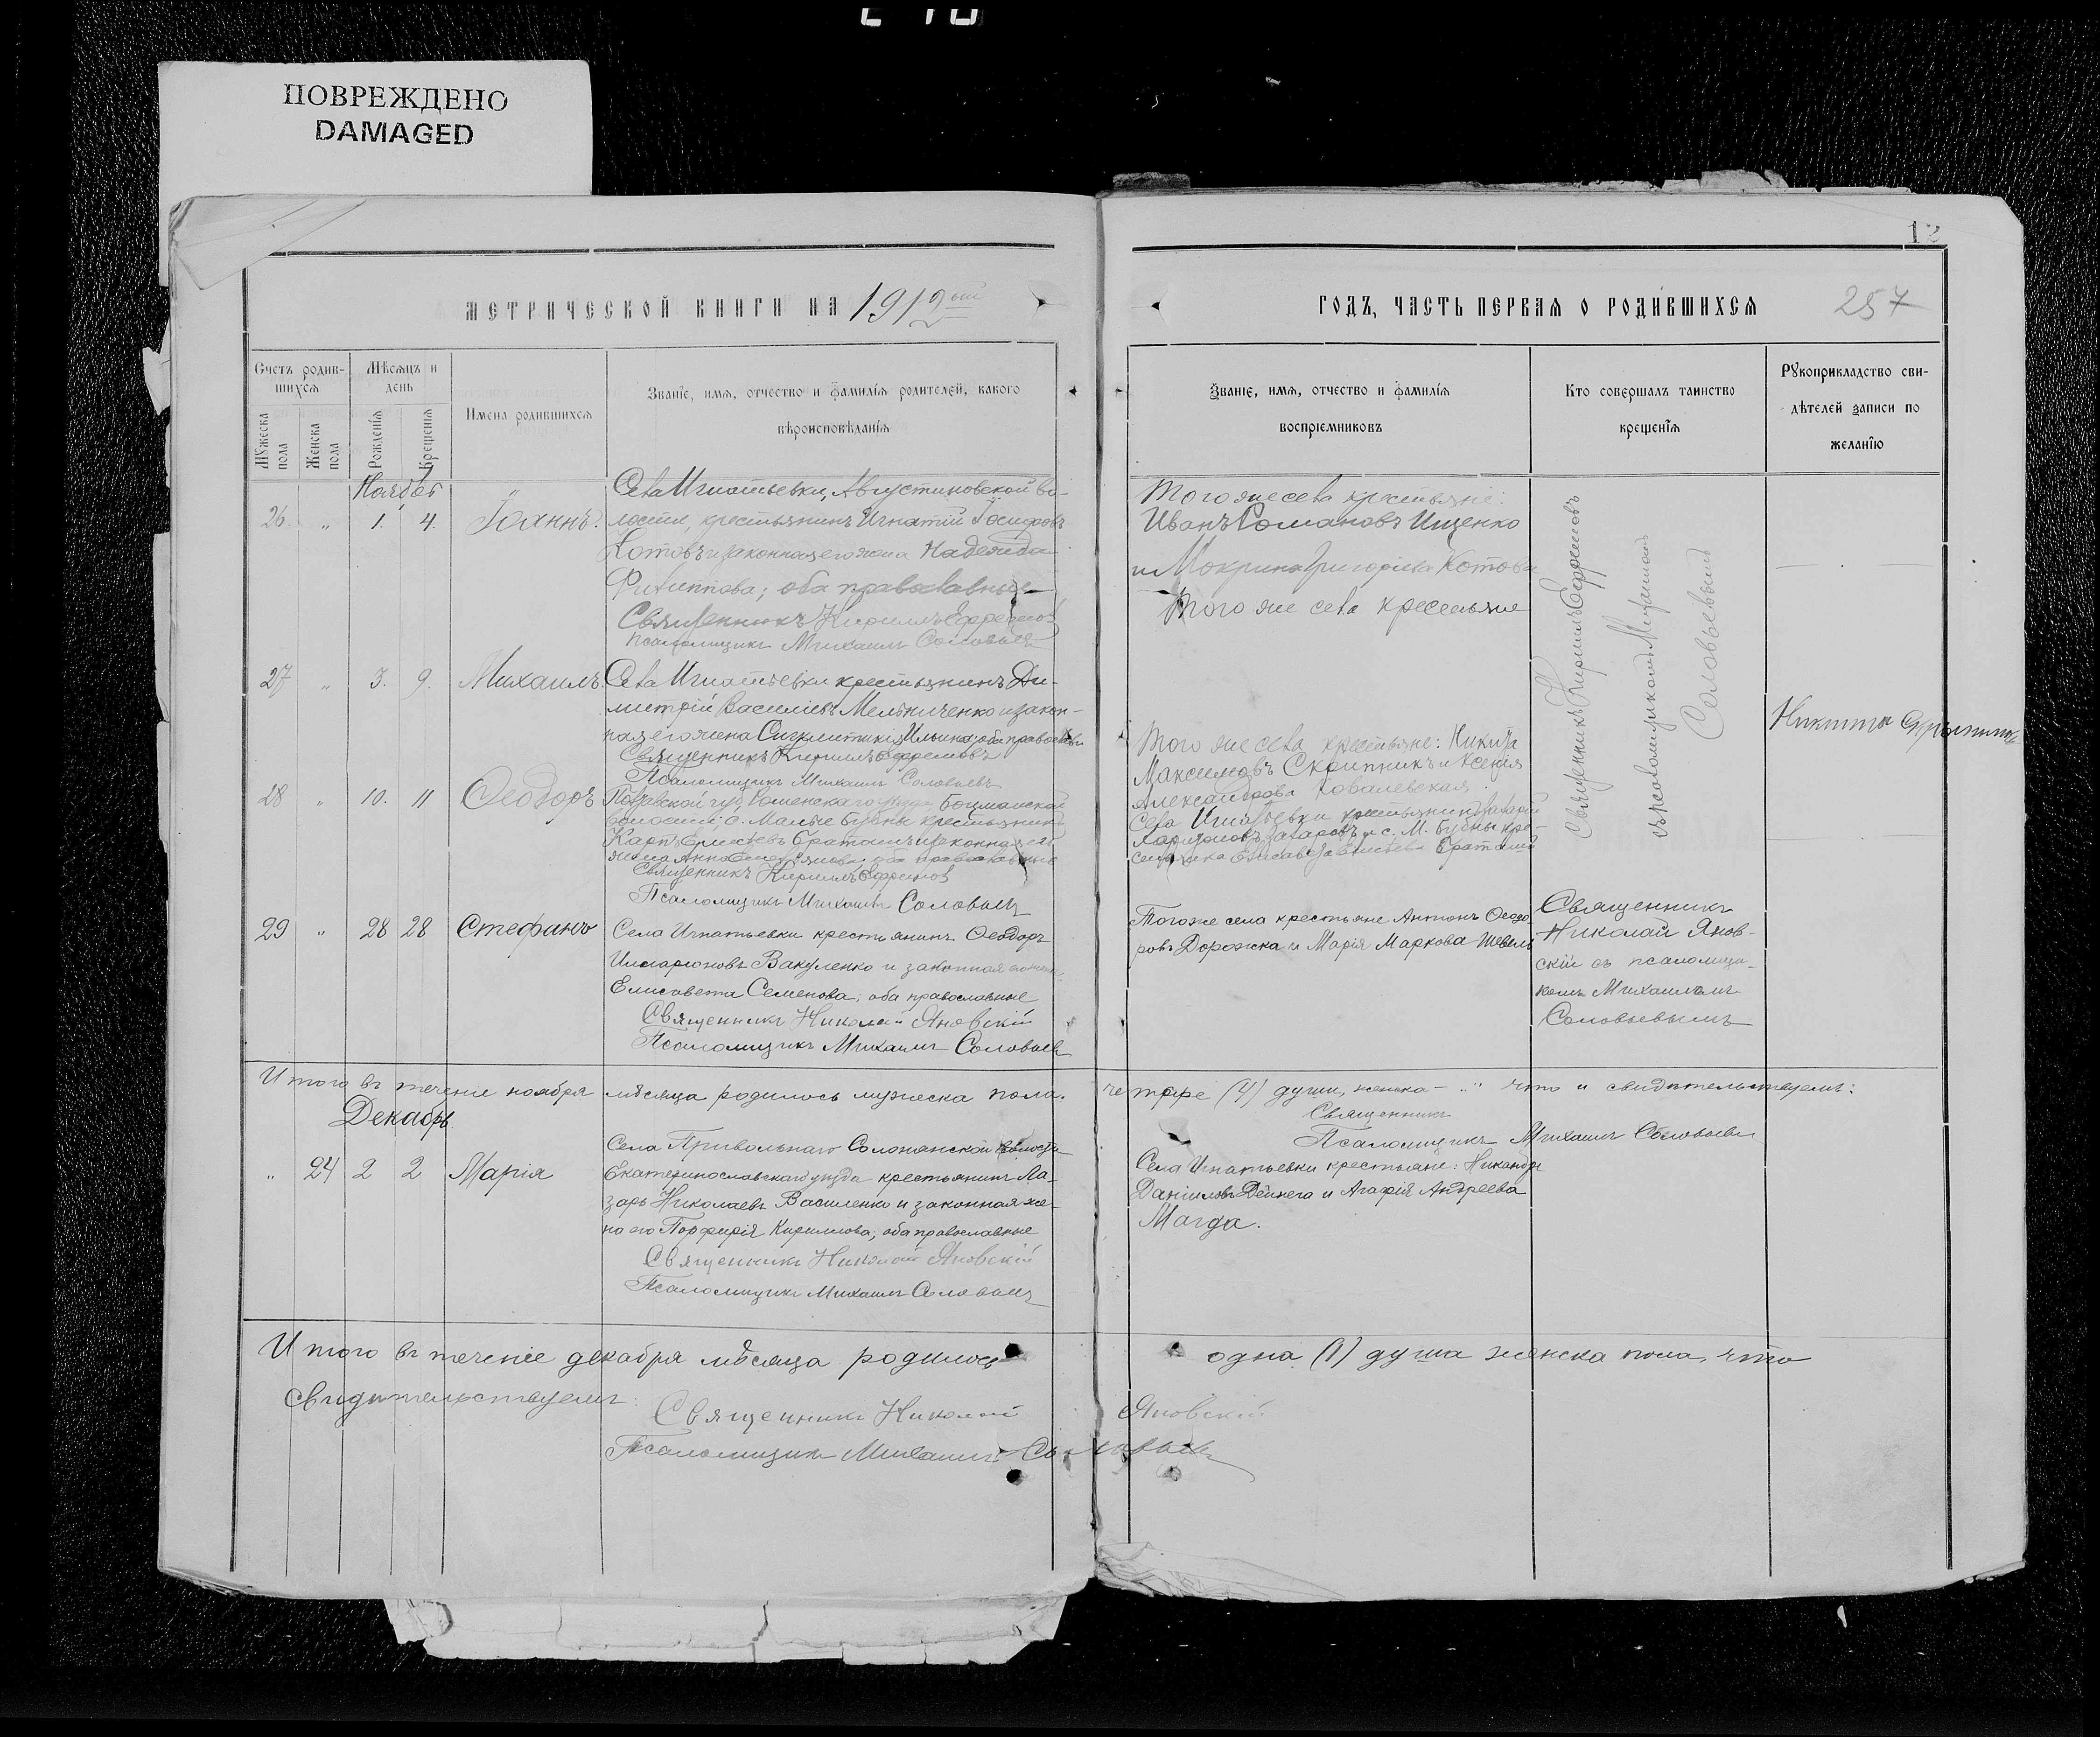 ПОВРЕЖДЕНО
DAMAGED
МЕТРИЧЕСКОЙ КНИГИ НА 1912ый
Счетъ родив-
шихся
Мужеска пола
Женска пола
Мѣсяцъ и
день
Рожденія
Крещенія
Имена родившихся
Званіе, имя, отчество и фамилія родителей, какого
вѣроисповѣданія
Ноябрь
26 „ 1. 4. Іоаннъ.
Села Игнатьевки, Августиновской во-
лости, крестьянинъ Игнатій Іосифовъ
Котовъ и законная его жена Надежда
Филиппова; оба православные
Священникъ Кириллъ Ефремовъ
Псаломщикъ Михаилъ Соловьевъ
27 „ 3. 9. Михаилъ.
Села Игнатьевки крестьянинъ Ди-
митрій Василіевъ Мельниченко и закон-
ная его жена Синклитикія Ильина; оба православн
Священникъ Кириллъ Ефремовъ
Псаломщикъ Михаилъ Соловьевъ
28 „ 10. 11 Ѳеодоръ
Полтавской губ, Роменскаго уѣзда
волости, с. Малые Бубны крестьянинъ
Карпъ Браташъ и законная его
жена Анна оба православные
Священникъ Кириллъ Ефремов
Псаломщикъ Михаилъ Соловьевъ
29 „ 28 28 Стефанъ
Села Игнатьевки крестьянинъ Ѳеодоръ
Илларіоновъ Вакуленко и законная жена
Елисавета Семенова, оба православные
Священникъ Николай Яновскій
Псаломщикъ Михаилъ Соловьевъ
Итого въ теченіе ноября мѣсяца родилось мужеска пола
Декабрь
„ 24 2 2 Марія
Села Привольнаго Солонянской волости
Екатеринославскаго уѣзда крестьянинъ Ла-
зарь Николаевъ Василенко и законная же-
на его Порфирія Кириллова, оба православные
Священникъ Николай Яновскій
Псаломщикъ Михаилъ Соловьевъ
Итого въ теченіе декабря мѣсяца родилось
свидѣтельствуемъ:
Священникъ Николай
Псаломщикъ Михаилъ Соловьевъ
ГОДЪ, ЧАСТЬ ПЕРВАЯ О РОДИВШИХСЯ
257
Званіе, имя, отчество и фамилія
воспріемниковъ
Кто совершалъ таинство
крещенія
Рукоприкладство сви-
дѣтелей записи по
желанію
Того же села крестьяне:
Иванъ Романовъ Ищенко
и Мокрина Григоріева Котова
Того же села крестьяне
Того же села крестьяне: Никита
Максимовъ Скрипникъ и Ксенія
Александрова Ковалевская.
Села Игнатьевки крестьянинъ
Захаровъ и с. М. Бубны кре-
стьянка Елисавета Браташъ
Священникъ Кириллъ Ефремовъ
съ псаломщикомъ Михаиломъ
Соловьевымъ
Никита
Того же села крестьяне Антонъ Ѳеодо-
ровъ Дорожка и Марія Маркова Шевель
Священникъ
Николай Янов-
скій съ псаломщи-
комъ Михаиломъ
Соловьевымъ
четыре (4) души, женска — „ что и свидѣтельствуемъ:
Священникъ
Псаломщикъ Михаилъ Соловьевъ
Села Игнатьевки крестьяне: Никандръ
Даніиловъ Дейнега и Агафія Андреева
Магда.
одна (1) душа женска пола, что
Яновскій